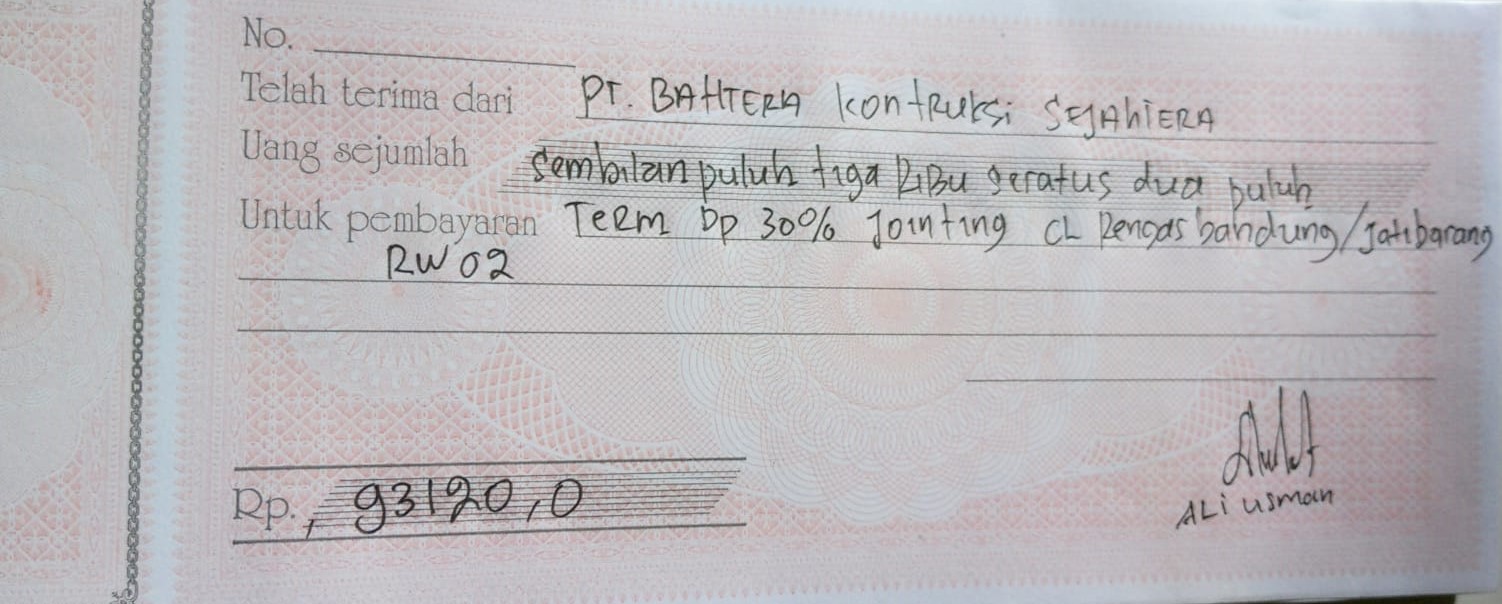 No.
Telah terima dari PT. BAHTERA KontRuksi SEJAhTERA
Uang sejumlah Sembilan puluh tiga RiBu seratus dua puluh
Untuk pembayaran TeRm Dp 30% Jointing CL Rengas bandung/jatibarang
RW 02
Rp., 93120,0
ALi usman